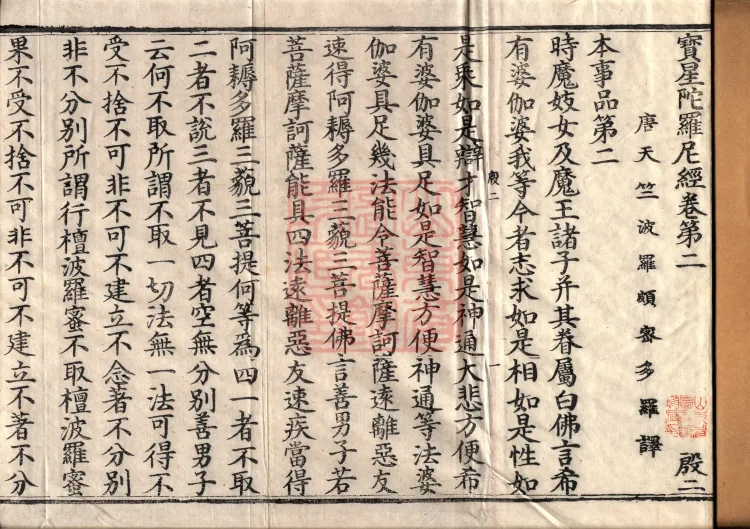 寶星陀羅尼經卷第二 殷二
唐天竺波羅頗蜜多羅譯
本事品第二
時魔妓女及魔王諸子并其眷屬白佛言希
有婆伽婆我等今者志求如是相如是性如
殷二 一
是乘如是辯才智慧如是神通大悲方便希
有婆伽婆具足如是智慧方便神通等法婆
伽婆具足幾法能令菩薩摩訶薩遠離惡友
速得阿耨多羅三藐三菩提佛言善男子若
菩薩摩訶薩能具四法遠離惡友速疾當得
阿耨多羅三藐三菩提何等為四一者不取
二者不說三者不見四者空無分別善男子
云何不取所謂不取一切法無一法可得不
受不捨不可非不可不建立不念著不分別
非不分別所謂行檀波羅蜜不取檀波羅蜜
果不受不捨不可非不可不建立不著不分